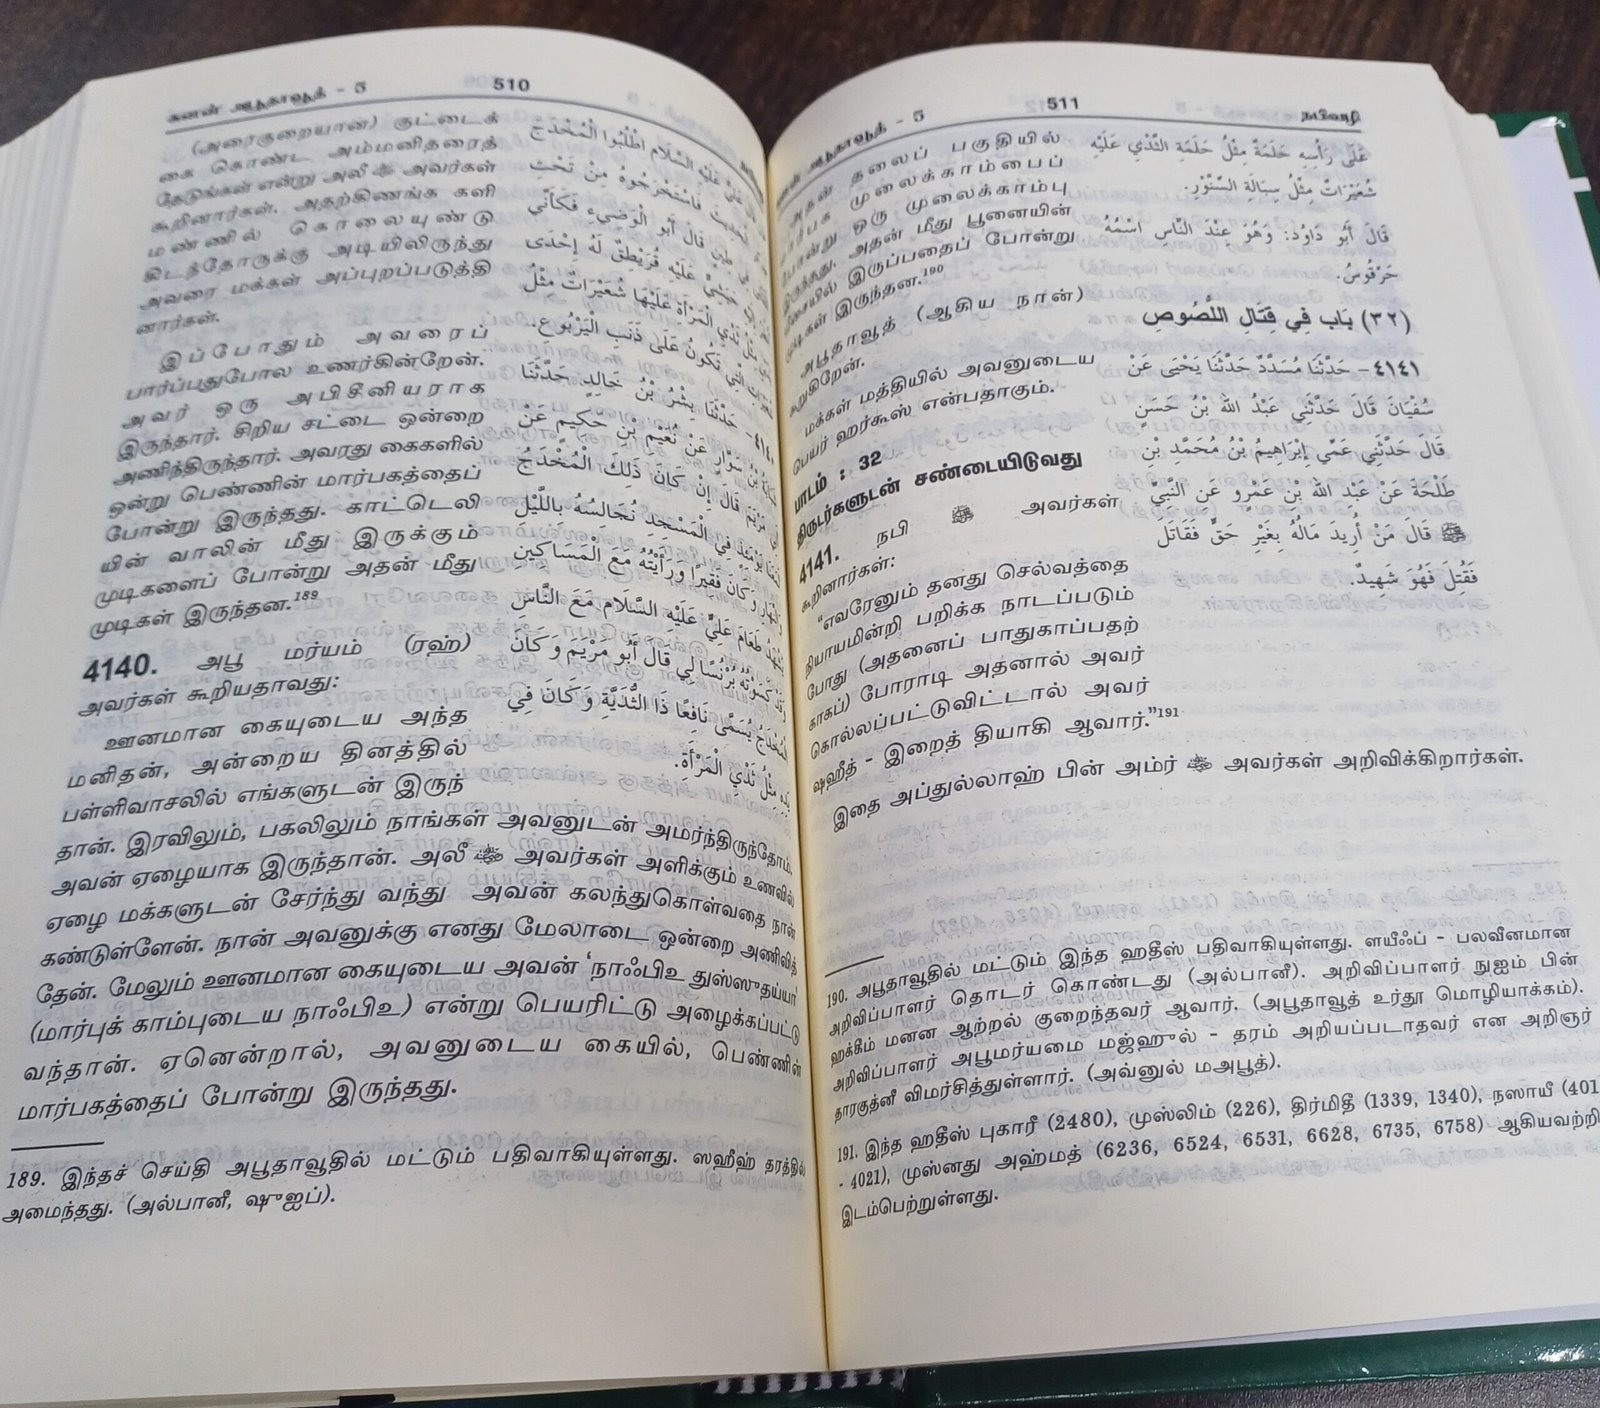 சுனன் அபூதாவூத் - 5 510
(அரைகுறையான) குட்டைக்
கை கொண்ட அம்மனிதரைத்
தேடுங்கள் என்று அலீ அவர்கள்
கூறினார்கள். அதற்கிணங்க களி
மண்ணில் கொலையுண்டு
கிடந்தோருக்கு அடியிலிருந்து
அவரை மக்கள் அப்புறப்படுத்தி
னார்கள்.
இப்போதும் அவரைப்
பார்ப்பதுபோல உணர்கின்றேன்.
அவர் ஒரு அபிசீனியராக
இருந்தார். சிறிய சட்டை ஒன்றை
அணிந்திருந்தார். அவரது கைகளில்
ஒன்று பெண்ணின் மார்பகத்தைப்
போன்று இருந்தது. காட்டெலி
யின் வாலின் மீது இருக்கும்
முடிகளைப் போன்று அதன் மீது
முடிகள் இருந்தன.189
4140. அபூ மர்யம் (ரஹ்)
அவர்கள் கூறியதாவது:
ஊனமான கையுடைய அந்த
மனிதன், அன்றைய தினத்தில்
பள்ளிவாசலில் எங்களுடன் இருந்
عَلَيْهِ السَّلَام اطْلُبُوا الْمُخْدَجَ
فَاسْتَخْرَجُوهُ مِنْ تَحْتِ
قَالَ أَبُو الْوَضِيءِ فَكَأَنِّي
حَبَشِيٌّ عَلَيْهِ قُرَيْطِقٌ لَهُ إِحْدَى
ثَدْيِ الْمَرْأَةِ عَلَيْهَا شُعَيْرَاتٌ مِثْلُ
الَّتِي تَكُونُ عَلَى ذَنَبِ الْيَرْبُوعِ.
حَدَّثَنَا بِشْرُ بْنُ خَالِدٍ حَدَّثَنَا
بْنُ سَوَّارٍ عَنْ نُعَيْمِ بْنِ حَكِيمٍ عَنْ
مَرْيَمَ قَالَ إِنْ كَانَ ذَلِكَ الْمُخْدَجُ
فِي الْمَسْجِدِ نُجَالِسُهُ بِاللَّيْلِ
وَكَانَ فَقِيرًا وَرَأَيْتُهُ مَعَ الْمَسَاكِينِ
طَعَامَ عَلِيٍّ عَلَيْهِ السَّلَام مَعَ النَّاسِ
كَسَوْتُهُ بُرْنُسًا لِي قَالَ أَبُو مَرْيَمَ وَكَانَ
يُسَمَّى نَافِعًا ذَا الثُّدَيَّةِ وَكَانَ فِي
مِثْلُ ثَدْيِ الْمَرْأَةِ.
தான். இரவிலும், பகலிலும் நாங்கள் அவனுடன் அமர்ந்திருந்தோம்.
அவன் ஏழையாக இருந்தான். அலீ அவர்கள் அளிக்கும் உணவில்
ஏழை மக்களுடன் சேர்ந்து வந்து அவன் கலந்துகொள்வதை நான்
கண்டுள்ளேன். நான் அவனுக்கு எனது மேலாடை ஒன்றை அணிவித்
தேன். மேலும் ஊனமான கையுடைய அவன் 'நாஃபிஉ துஸ்ஸுதய்யா'
(மார்புக் காம்புடைய நாஃபிஉ) என்று பெயரிட்டு அழைக்கப்பட்டு
வந்தான். ஏனென்றால், அவனுடைய கையில், பெண்ணின்
மார்பகத்தைப் போன்று இருந்தது.
189. இந்தச் செய்தி அபூதாவூதில் மட்டும் பதிவாகியுள்ளது. ஸஹீஹ் தரத்தில்
அமைந்தது. (அல்பானீ, ஷுஐப்).
அபூதாவூத் - 5 511 நபிவழி
அதன் தலைப் பகுதியில்
முலைக்காம்பைப்
ஒரு முலைக்காம்பு
இருந்தது. அதன் மீது பூனையின்
மீசையில் இருப்பதைப் போன்று
முடிகள் இருந்தன.190
அபூதாவூத் (ஆகிய நான்)
கூறுகிறேன்.
மக்கள் மத்தியில் அவனுடைய
பெயர் ஹர்கூஸ் என்பதாகும்.
பாடம் : 32
திருடர்களுடன் சண்டையிடுவது
4141. நபி ﷺ அவர்கள்
கூறினார்கள்:
"எவரேனும் தனது செல்வத்தை
நியாயமின்றி பறிக்க நாடப்படும்
போது (அதனைப் பாதுகாப்பதற்
காகப்) போராடி அதனால் அவர்
கொல்லப்பட்டுவிட்டால் அவர்
ஷஹீத் - இறைத் தியாகி ஆவார்."191
عَلَى رَأْسِهِ حَلَمَةٌ مِثْلُ حَلَمَةِ الثَّدْيِ عَلَيْهِ
شُعَيْرَاتٌ مِثْلُ سِبَالَةِ السِّنَّوْرِ.
قَالَ أَبُو دَاوُد: وَهُوَ عِنْدَ النَّاسِ اسْمُهُ
حَرْقُوسُ.
(٣٢) بَاب فِي قِتَالِ اللُّصُوصِ
٤١٤١- حَدَّثَنَا مُسَدَّدٌ حَدَّثَنَا يَحْيَى عَنْ
سُفْيَانَ قَالَ حَدَّثَنِي عَبْدُ اللَّهِ بْنُ حَسَنٍ
قَالَ حَدَّثَنِي عَمِّي إِبْرَاهِيمُ بْنُ مُحَمَّدِ بْنِ
طَلْحَةَ عَنْ عَبْدِ اللَّهِ بْنِ عَمْرٍو عَنِ النَّبِيِّ
ﷺ قَالَ مَنْ أُرِيدَ مَالُهُ بِغَيْرِ حَقٍّ فَقَاتَلَ
فَقُتِلَ فَهُوَ شَهِيدٌ.
இதை அப்துல்லாஹ் பின் அம்ர் அவர்கள் அறிவிக்கிறார்கள்.
190. அபூதாவூதில் மட்டும் இந்த ஹதீஸ் பதிவாகியுள்ளது. ளயீஃப் - பலவீனமான
அறிவிப்பாளர் தொடர் கொண்டது (அல்பானீ). அறிவிப்பாளர் நுஐம் பின்
ஹக்கீம் மனன ஆற்றல் குறைந்தவர் ஆவார். (அபூதாவூத் உர்தூ மொழியாக்கம்).
அறிவிப்பாளர் அபூமர்யமை மஜ்ஹுல் - தரம் அறியப்படாதவர் என அறிஞர்
தாரகுத்னீ விமர்சித்துள்ளார். (அவ்னுல் மஅபூத்).
191. இந்த ஹதீஸ் புகாரீ (2480), முஸ்லிம் (226), திர்மிதீ (1339, 1340), நஸாயீ (401
- 4021), முஸ்னது அஹ்மத் (6236, 6524, 6531, 6628, 6735, 6758) ஆகியவற்றி
இடம்பெற்றுள்ளது.